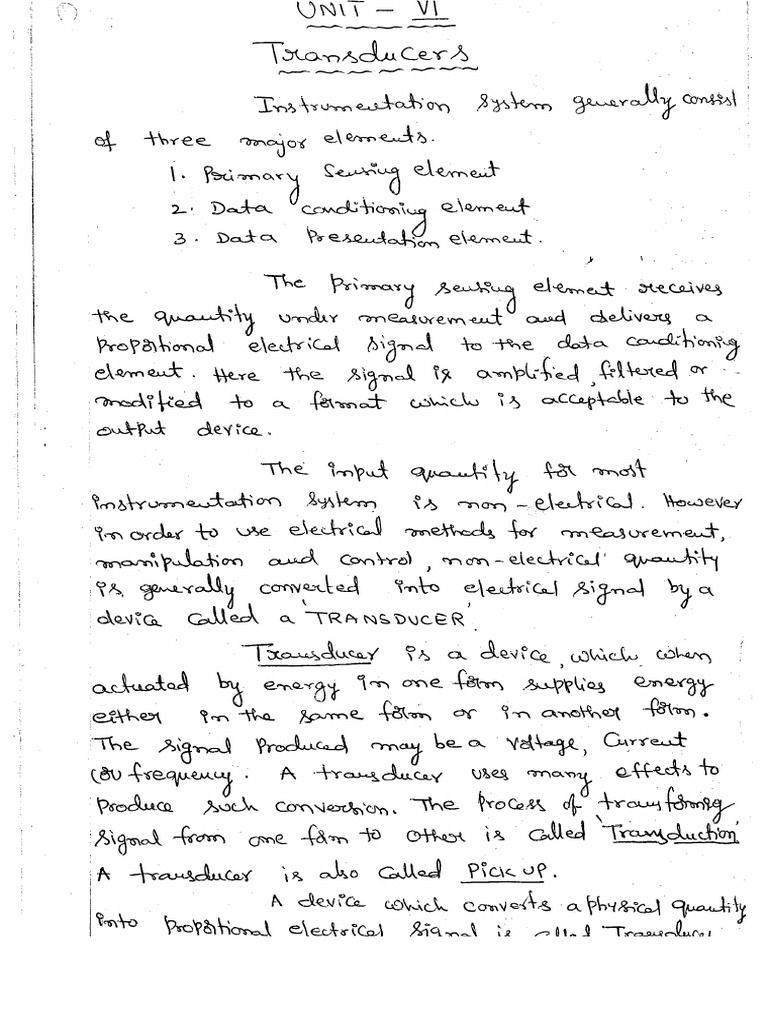 UNIT - VI
Transducers
Instrumentation system generally consist
of three major elements.
1. Primary sensing element
2. Data conditioning element
3. Data Presentation element.
The Primary sensing element receives
the quantity under measurement and delivers a
propotional electrical signal to the data conditioning
element. Here the signal is amplified, filtered or
modified to a format which is acceptable to the
output device.
The input quantity for most
instrumentation system is non-electrical. However
in order to use electrical methods for measurement,
manipulation and control, non-electrical quantity
is generally converted into electrical signal by a
device called a 'TRANSDUCER'.
Transducer is a device, which when
actuated by energy in one form supplies energy
either in the same form or in another form.
The signal produced may be a voltage, current
(or) frequency. A transducer uses many effects to
produce such conversion. The process of transforming
signal from one form to other is called 'Transduction'
A transducer is also called PICK UP.
A device which converts a physical quantity
into propotional electrical signal is called Transducer